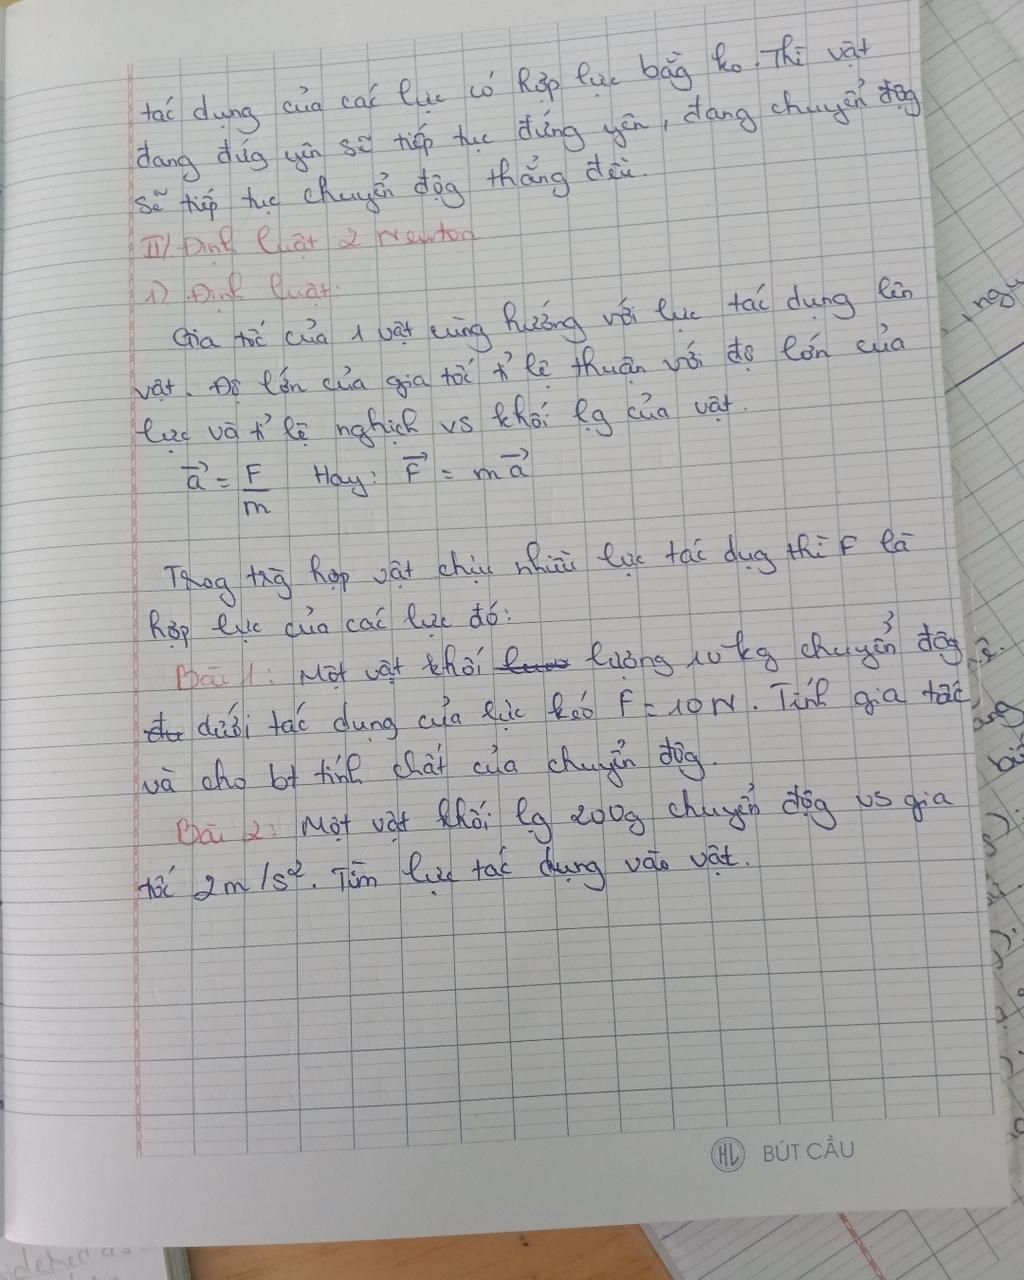 tác dụng của các lực có hợp lực bằg ko. Thì vật
đang đứg yên sẽ tiếp tục đứng yên, đang chuyển độg
sẽ tiếp tục chuyển độg thẳng đều.
II/ Định luật 2 Newton
1) Định luật:
Gia tốc của 1 vật cùng hướng với lực tác dụng lên
vật. Độ lớn của gia tốc tỉ lệ thuận với độ lớn của
lực và tỉ lệ nghịch vs khối lg của vật.
a⃗ = F/m Hay: F⃗ = ma⃗
Trog trg̀ hợp vật chịu nhiều lực tác dụg thì F là
hợp lực của các lực đó:
Bài 1: Một vật khối lượng 10 kg chuyển độg
dưới tác dụng của lực kéo F = 10N. Tính gia tốc
và cho bt tính chất của chuyển độg.
Bài 2: Một vật khối lg 200g chuyển độg vs gia
tốc 2m/s². Tìm lực tác dụng vào vật.
HL BÚT CẦU